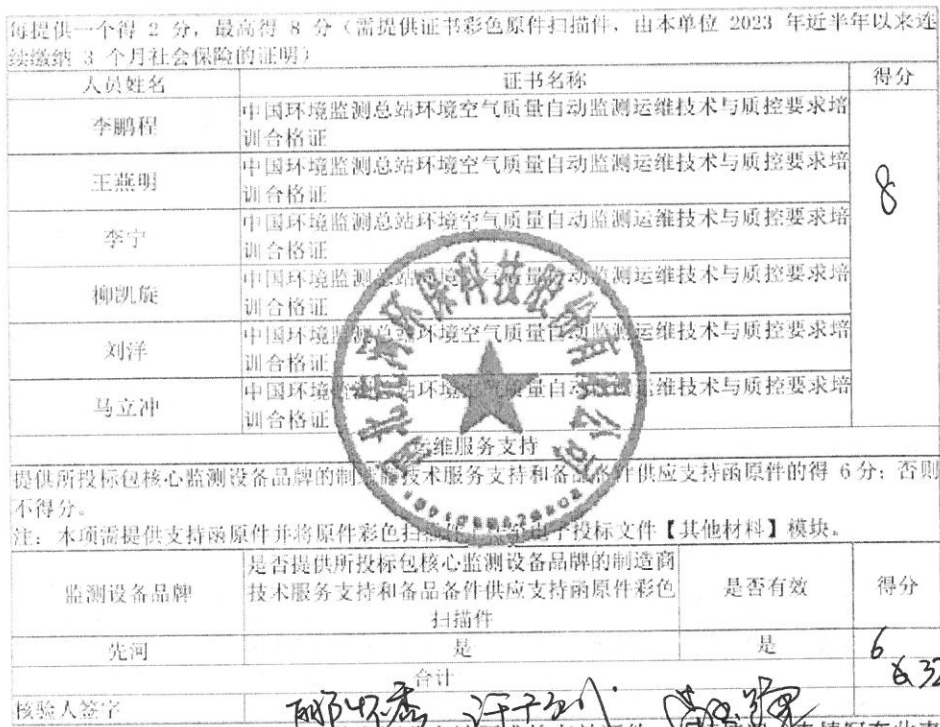 每提供一个得 2 分，最高得 8 分（需提供证书彩色原件扫描件，由本单位 2023 年近半年以来连
续缴纳 3 个月社会保险的证明）
人员姓名 证书名称 得分
李鹏程 中国环境监测总站环境空气质量自动监测运维技术与质控要求培
训合格证
王燕明 中国环境监测总站环境空气质量自动监测运维技术与质控要求培
训合格证
8
李宁 中国环境监测总站环境空气质量自动监测运维技术与质控要求培
训合格证
柳凯旋 中国环境监测总站环境空气质量自动监测运维技术与质控要求培
训合格证
刘洋 中国环境监测总站环境空气质量自动监测运维技术与质控要求培
训合格证
马立冲 中国环境监测总站环境空气质量自动监测运维技术与质控要求培
训合格证
环保科技股份有限公司
运维服务支持
提供所投标包核心监测设备品牌的制造商技术服务支持和备品备件供应支持函原件的得 6 分；否则
不得分。
注：本项需提供支持函原件并将原件彩色扫描件 电子投标文件【其他材料】模块。
监测设备品牌 是否提供所投标包核心监测设备品牌的制造商
技术服务支持和备品备件供应支持函原件彩色
扫描件 是否有效 得分
先河 是 是 6
合计 32
核验人签字